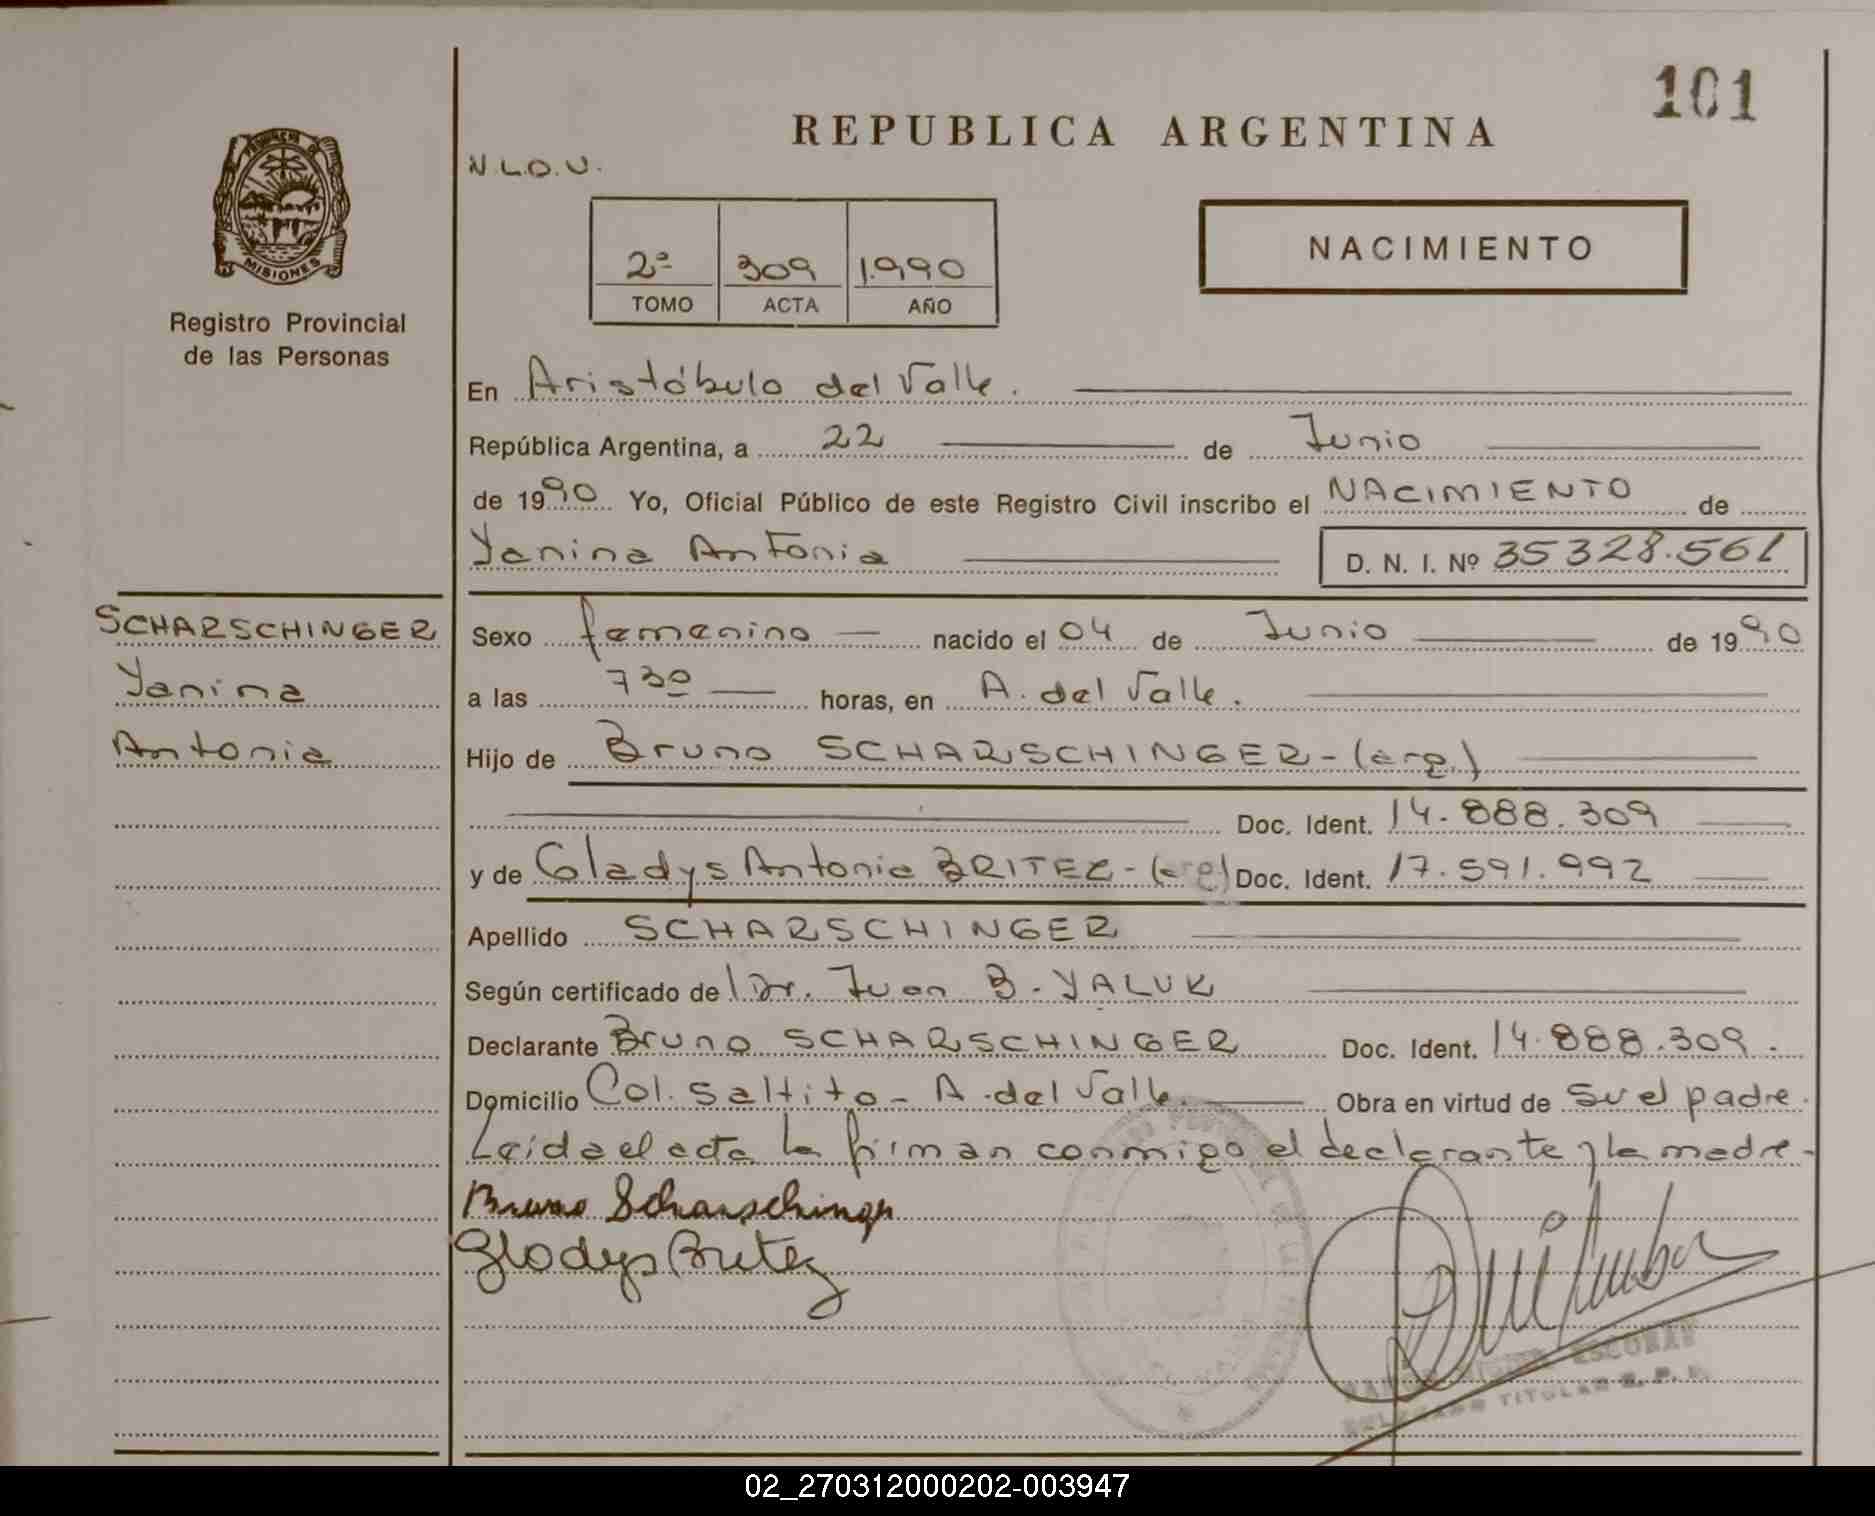 101
REPUBLICA ARGENTINA
N.L.D.U.
MISIONES
Registro Provincial
de las Personas
2ª 309 1.990
TOMO ACTA AÑO
NACIMIENTO
En Aristóbulo del Valle.
República Argentina, a 22 de Junio
de 1990 Yo, Oficial Público de este Registro Civil inscribo el NACIMIENTO de
Yanina Antonia D. N. I. Nº 35328.561
SCHARSCHINGER
Yanina
Antonia
Sexo femenino nacido el 04 de Junio de 1990
a las 730 horas, en A. del Valle.
Hijo de Bruno SCHARSCHINGER - (arg.)
Doc. Ident. 14.888.309
y de Gladys Antonia BRITEZ - (arg) Doc. Ident. 17.591.992
Apellido SCHARSCHINGER
Según certificado del Dr. Juan B. YALUK
Declarante Bruno SCHARSCHINGER Doc. Ident. 14.888.309.
Domicilio Col. Saltito - A. del Valle. Obra en virtud de Su el padre.
Leída el acta la firman conmigo el declarante y la madre -
Bruno Scharschinger
Gladys Britez
ESCOBAR
TITULAR R. P. P.
02_270312000202-003947